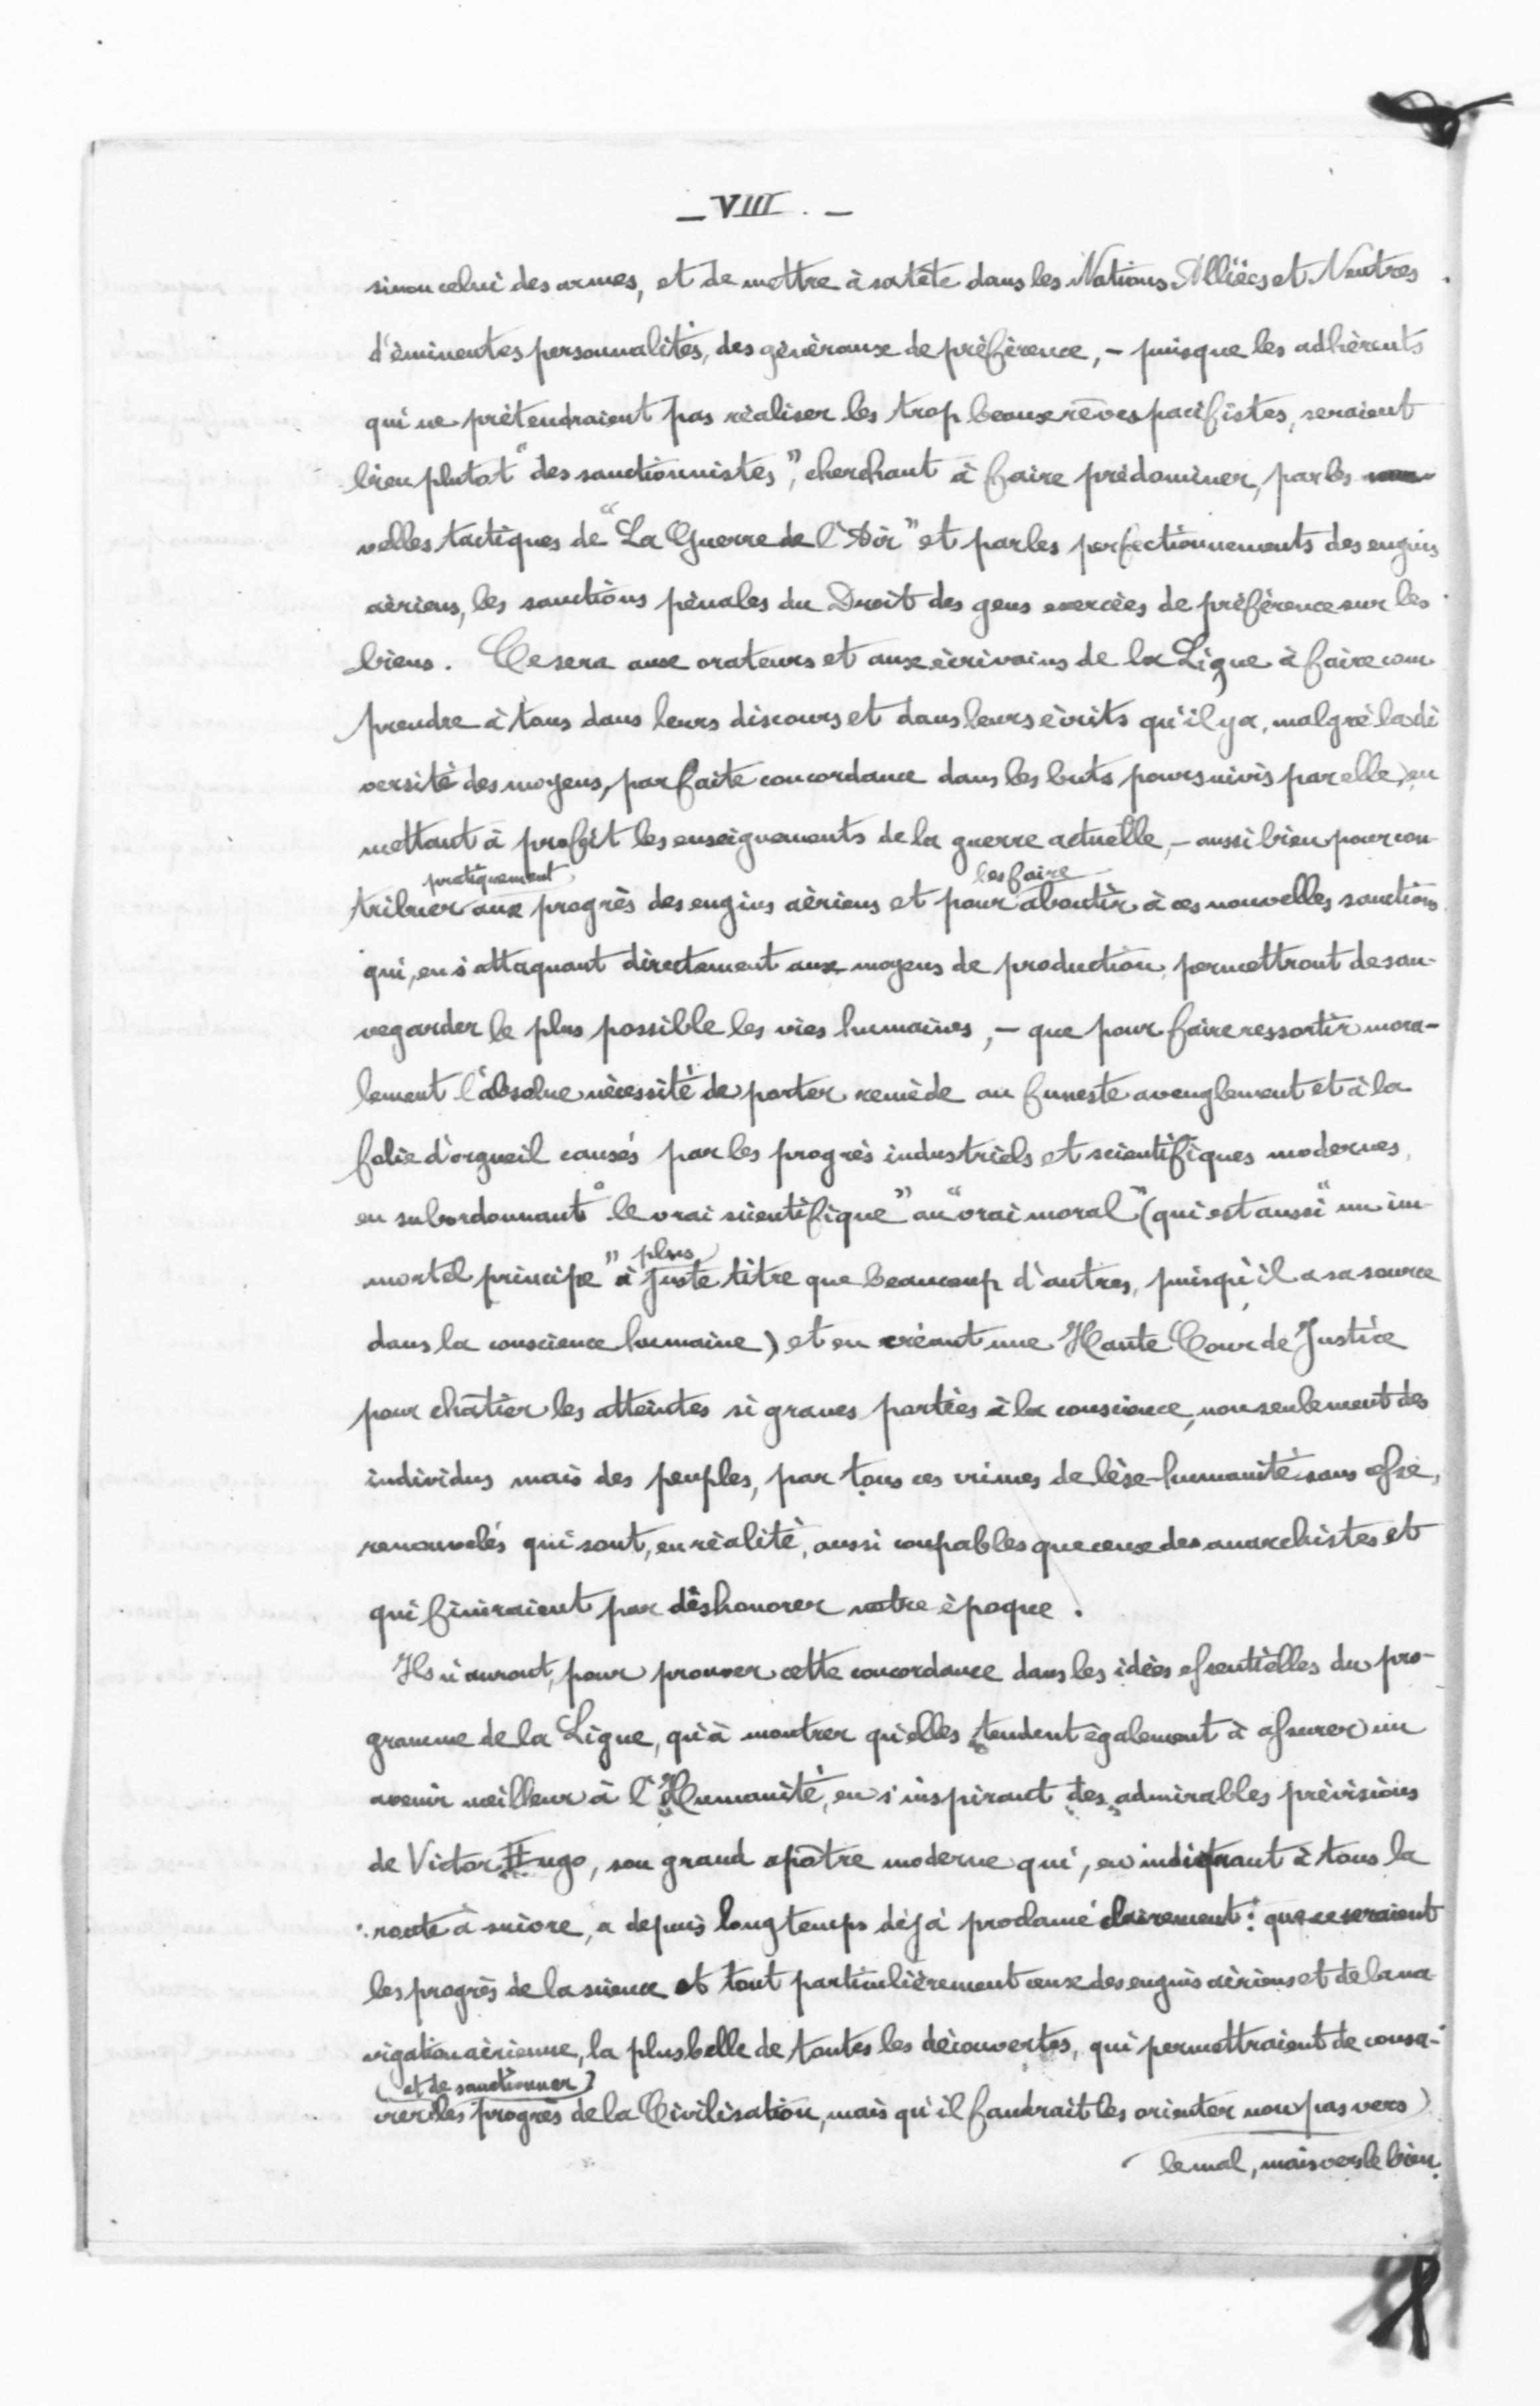 _ VIII . _
sinon celui des armes, et de mettre à sa tête dans les Nations Alliées et Neutres
d'éminentes personnalités, des généraux de préférence, - puisque les adhérents
qui ne prétendraient pas réaliser les trop beaux rêves pacifistes, seraient
bien plutot "des sanctionnistes", cherchant à faire prédominer, par les nou-
velles tactiques de "La Guerre de l'Air" et par les perfectionnements des engins
aériens, les sanctions pénales du Droit des gens exercées de préférence sur les
biens. Ce sera aux orateurs et aux écrivains de la Ligue à faire com
prendre à tous dans leurs discours et dans leurs écrits qu'il y a, malgré la di
versité des moyens, parfaite concordance dans les buts poursuivis par elle, en
mettant à profit les enseignements de la guerre actuelle, - aussi bien pour con-
pratiquement les faire
tribuer aux progrès des engins aériens et pour aboutir à ces nouvelles sanctions
qui, en s'attaquant directement aux moyens de production, permettront de sau-
vegarder le plus possible les vies humaines, - que pour faire ressortir mora-
lement l'absolue nécessité de porter remède au funeste aveuglement et à la
folie d'orgueil causés par les progrès industriels et scientifiques modernes,
en subordonnant "le vrai scientifique" au "vrai moral" (qui est aussi "un im-
plus
mortel principe" à juste titre que beaucoup d'autres, puisqu'il a sa source
dans la conscience humaine) et en créant une Haute Cour de Justice
pour chatier les atteintes si graves portées à la conscience, non seulement des
individus mais des peuples, par tous ces crimes de lèse-humanité sans cesse,
renouvelés qui sont, en réalité, aussi coupables que ceux des anarchistes et
qui finiraient par déshonorer notre époque.
Ils n'auront, pour prouver cette concordance dans les idées essentielles du pro-
gramme de la Ligue, qu'à montrer qu'elles tendent également à assurer un
avenir meilleur à l'Humanité, en s'inspirant des admirables prévisions
de Victor Hugo, son grand apôtre moderne qui, en indiquant à tous la
route à suivre, a depuis longtemps déjà proclamé clairement : que ce seraient
les progrès de la science et tout particulièrement ceux des engins aériens et de la na
vigation aérienne, la plus belle de toutes les découvertes, qui permettraient de consa-
(et de sanctionner)
crer les progrès de la Civilisation, mais qu'il faudrait les orienter non pas vers
le mal, mais vers le bien.